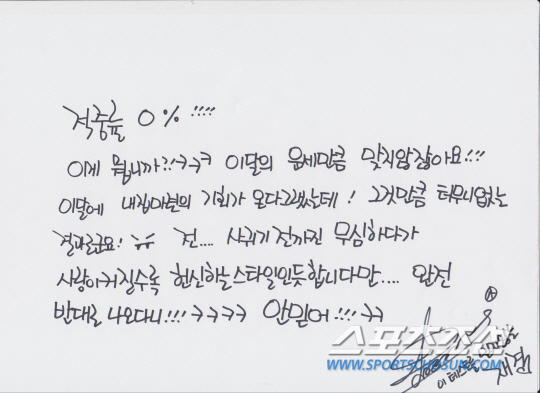 적중률 0% !!!!
이게 뭡니까?!ㅋㅋㅋ 이달의 운세만큼 맞지않잖아요!!!
이달에 내집마련의 기회가 온다그랬는데! 그것만큼 터무니없는
결과로군요! ㅠㅠ 전.... 사귀기 전까진 무심하다가
사랑이커질수록 헌신하는스타일인듯합니다만.... 완전
반대로 나오다니!!! ㅋㅋㅋㅋ 안믿어!!! ㅋㅋ
스포츠조선
WWW.SPORTSCHOSUN.COM
이 테스트